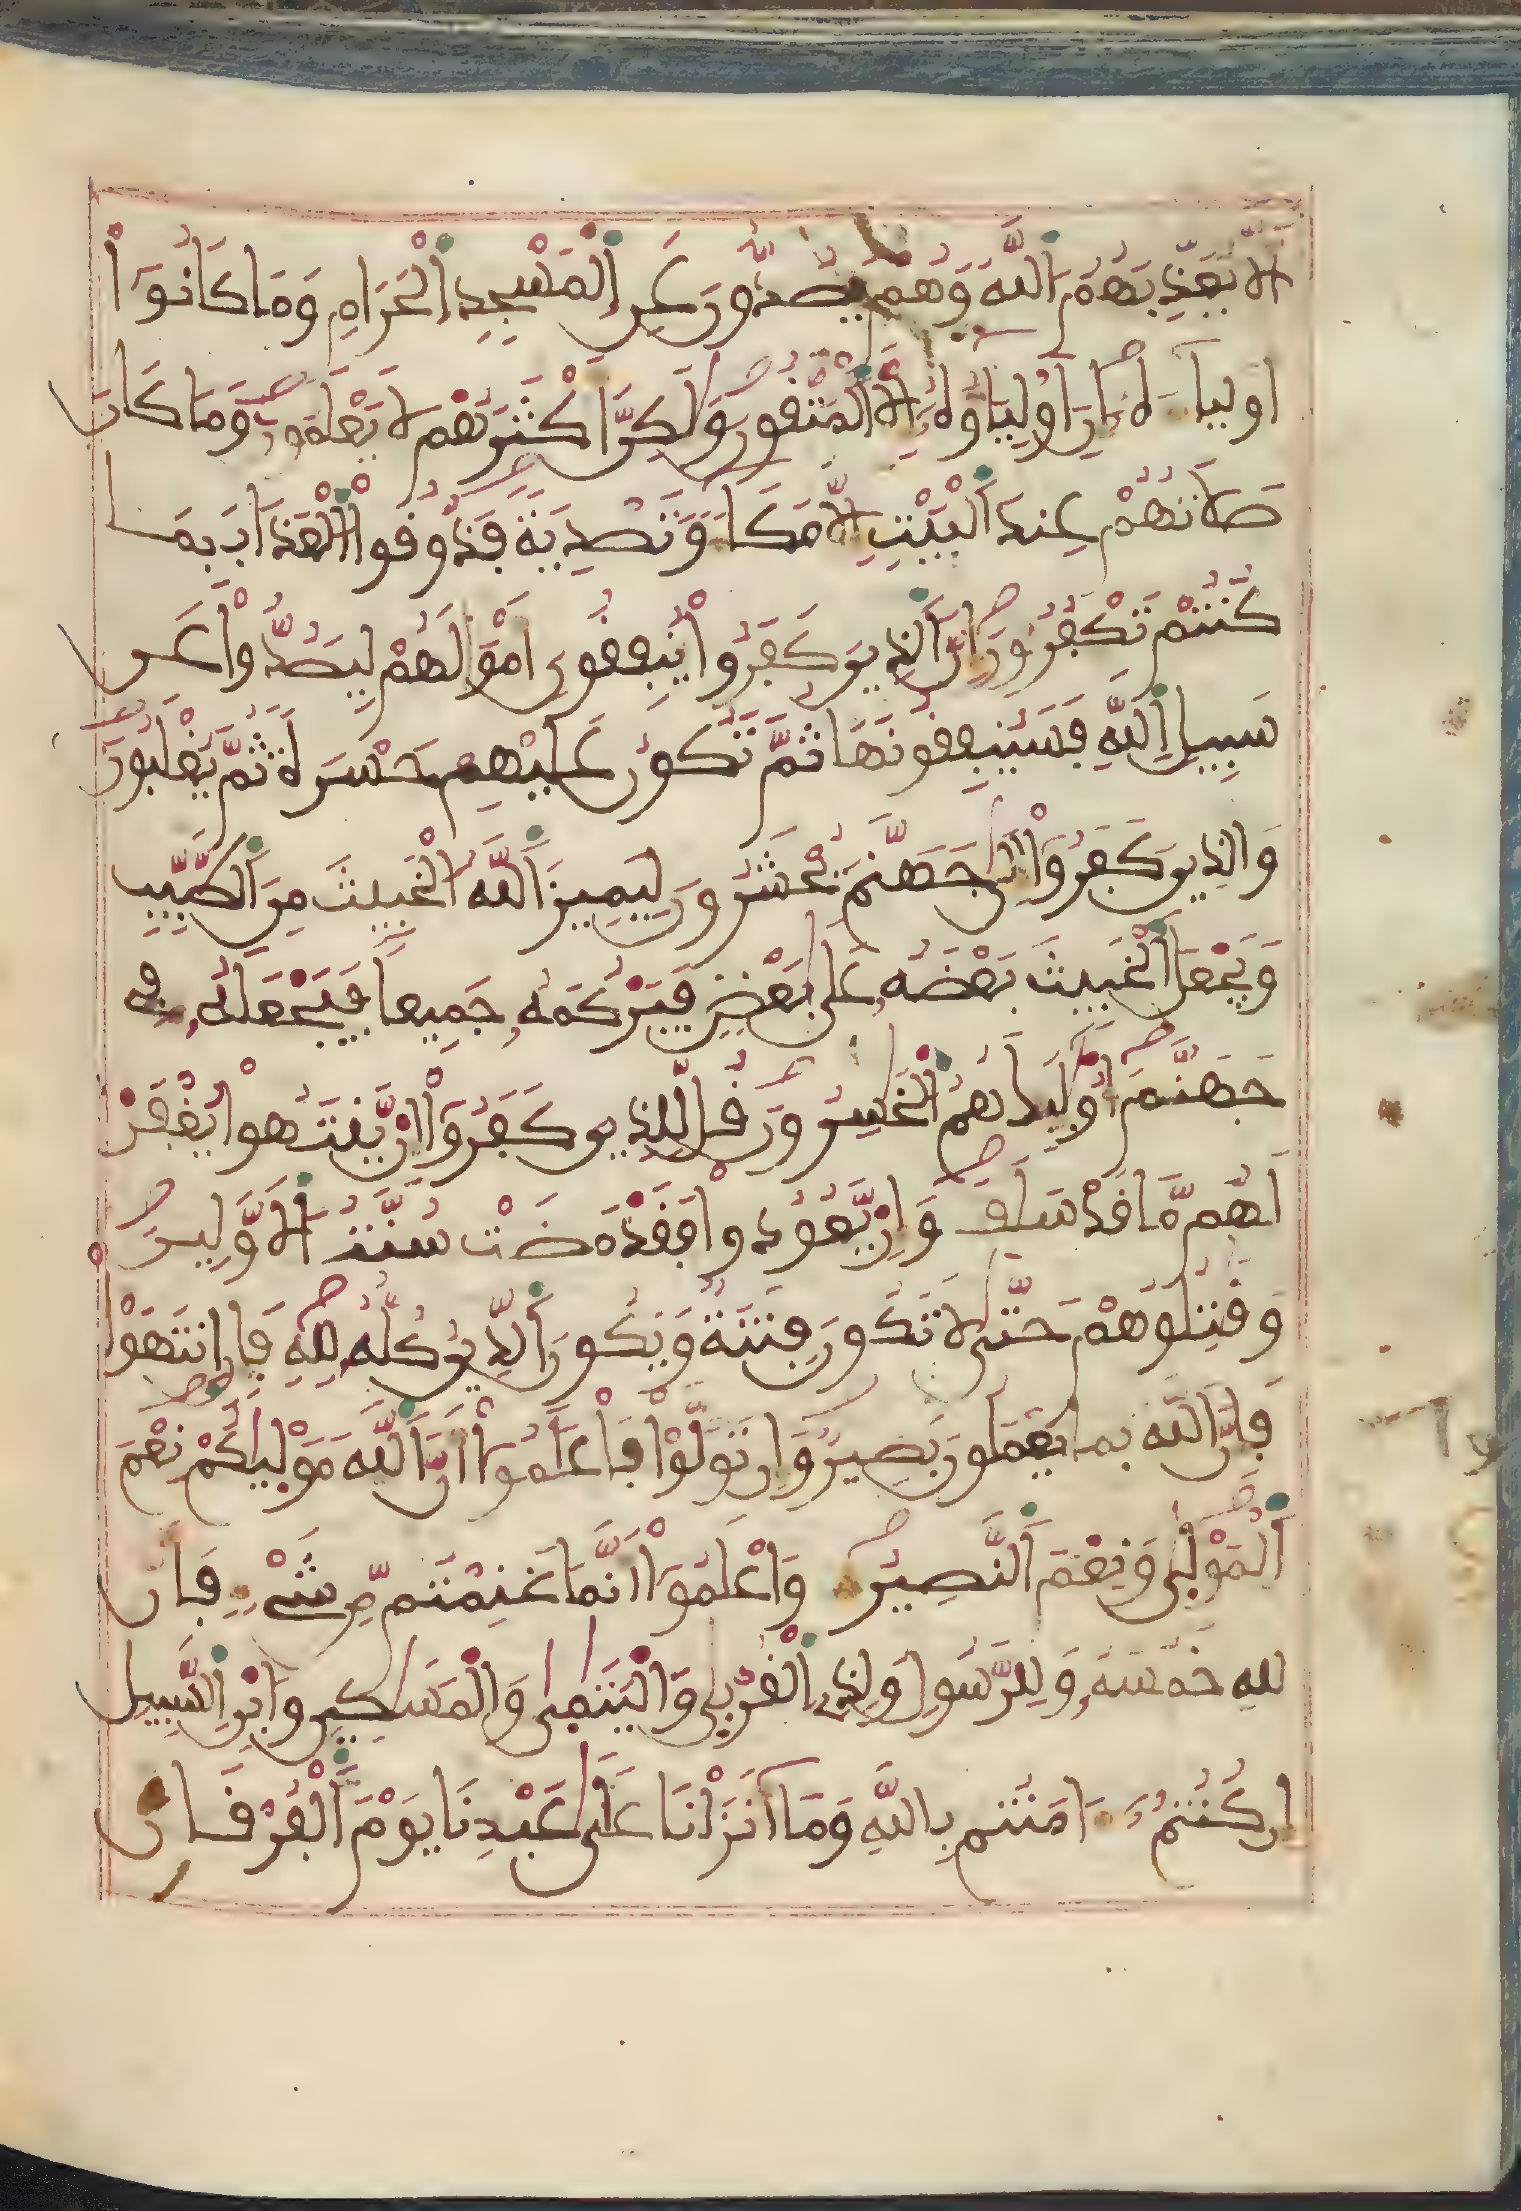 الا يعذبهم الله وهم يصدون عن المسجد الحرام وما كانوا
اولياءه ان اولياؤه الا المتقون ولكن اكثرهم لا يعلمون وما كان
صلاتهم عند البيت الا مكاء وتصدية فذوقوا العذاب بما
كنتم تكفرون ان الذين كفروا ينفقون امولهم ليصدوا عن
سبيل الله فسينفقونها ثم تكون عليهم حسرة ثم يغلبون
والذين كفروا الى جهنم يحشرون ليميز الله الخبيث من الطيب
ويجعل الخبيث بعضه على بعض فيركمه جميعا فيجعله في
جهنم اوليك هم الخسرون قل للذين كفروا ان ينتهوا يغفر
لهم ما قد سلف وان يعودوا فقد مضت سنت الاولين
وقتلوهم حتى لا تكون فتنة ويكون الدين كله لله فان انتهوا
فان الله بما يعملون بصير وان تولوا فاعلموا ان الله موليكم نعم
المولى ونعم النصير واعلموا انما غنمتم من شيء فان
لله خمسه وللرسول ولذي القربى واليتمى والمسكين وابن السبيل
ان كنتم ءامنتم بالله وما انزلنا على عبدنا يوم الفرقان